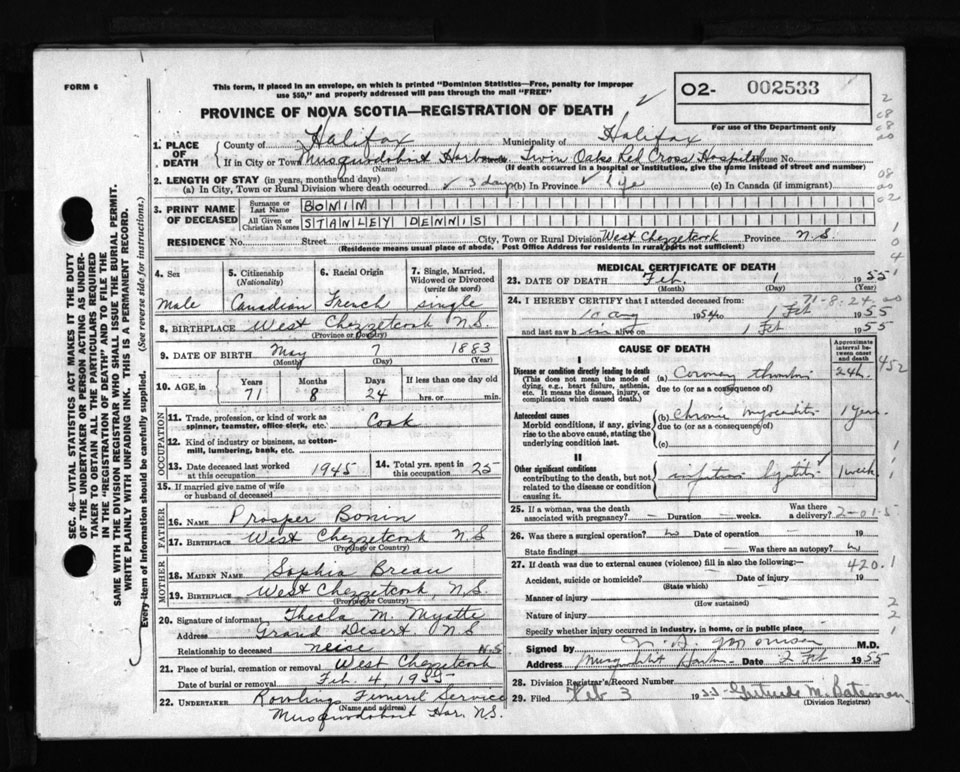 FORM 6
This form, if placed in an envelope, on which is printed "Dominion Statistics—Free, penalty for improper
use $50," and properly addressed will pass through the mail "FREE"
PROVINCE OF NOVA SCOTIA—REGISTRATION OF DEATH
02- 002533
For use of the Department only
1. PLACE OF DEATH
County of Halifax Municipality of Halifax
If in City or Town Musquodoboit Harbour Twin Oaks Red Cross Hospital House No.
(Name) (If death occurred in a hospital or institution, give the name instead of street and number)
2. LENGTH OF STAY (in years, months and days)
(a) In City, Town or Rural Division where death occurred 3 days (b) In Province life (c) In Canada (if immigrant)
3. PRINT NAME OF DECEASED
Surname or Last Name BONIN
All Given or Christian Names STANLEY DENNIS
RESIDENCE No. Street City, Town or Rural Division West Chezzetcook Province N.S.
(Residence means usual place of abode. Post Office Address for residents in rural parts not sufficient)
4. Sex Male
5. Citizenship (Nationality) Canadian
6. Racial Origin French
7. Single, Married, Widowed or Divorced (write the word) single
8. BIRTHPLACE West Chezzetcook N.S.
(Province or Country)
9. DATE OF BIRTH May 7 1883
(Month) (Day) (Year)
10. AGE, in Years 71 Months 8 Days 24 If less than one day old hrs. or min.
OCCUPATION
11. Trade, profession, or kind of work as spinner, teamster, office clerk, etc. Cook
12. Kind of industry or business, as cotton-mill, lumbering, bank, etc.
13. Date deceased last worked at this occupation 1945
14. Total yrs. spent in this occupation 25
15. If married give name of wife or husband of deceased
FATHER
16. NAME Prosper Bonin
17. BIRTHPLACE West Chezzetcook, N.S
(Province or Country)
MOTHER
18. MAIDEN NAME Sophia Breau
19. BIRTHPLACE West Chezzetcook, N.S.
(Province or Country)
20. Signature of informant Thecla M. Myatte
Address Grand Desert, N.S
Relationship to deceased neise N.S
21. Place of burial, cremation or removal West Chezzetcook
Date of burial or removal Feb. 4 1955
22. UNDERTAKER Rowlings Funeral Service
(Name and address)
Musquodoboit Har, N.S.
MEDICAL CERTIFICATE OF DEATH
23. DATE OF DEATH Feb. 1 1955
(Month) (Day) (Year)
71-8-24
24. I HEREBY CERTIFY that I attended deceased from:
10 Aug 1954 to 1 Feb 1955
and last saw him alive on 1 Feb 1955
CAUSE OF DEATH
Approximate interval between onset and death
I
Disease or condition directly leading to death
(This does not mean the mode of dying, e.g., heart failure, asthenia, etc. It means the disease, injury, or complication which caused death.)
(a) Coronary thrombosis 24h.
due to (or as a consequence of)
Antecedent causes
Morbid conditions, if any, giving rise to the above cause, stating the underlying condition last.
(b) Chronic myocarditis 1 year
due to (or as a consequence of)
(c)
II
Other significant conditions
contributing to the death, but not related to the disease or condition causing it.
1 week
452
25. If a woman, was the death associated with pregnancy? Duration weeks. Was there a delivery?
26. Was there a surgical operation? Date of operation 19
State findings Was there an autopsy?
27. If death was due to external causes (violence) fill in also the following:—
420.1
Accident, suicide or homicide? Date of injury 19
(State which)
Manner of injury
(How sustained)
Nature of injury
Specify whether injury occurred in industry, in home, or in public place
Signed by M.D.
Address Musquodoboit Harbour Date 2 Feb 1955
28. Division Registrar's Record Number
29. Filed Feb 3 1955 Gertrude M. Bateman
(Division Registrar)
SEC. 46—VITAL STATISTICS ACT MAKES IT THE DUTY
OF THE UNDERTAKER OR PERSON ACTING AS UNDER-
TAKER TO OBTAIN ALL THE PARTICULARS REQUIRED
IN THE "REGISTRATION OF DEATH" AND TO FILE THE
SAME WITH THE DIVISION REGISTRAR WHO SHALL ISSUE THE BURIAL PERMIT.
WRITE PLAINLY WITH UNFADING INK. THIS IS A PERMANENT RECORD.
Every item of information should be carefully supplied. (See reverse side for instructions.)